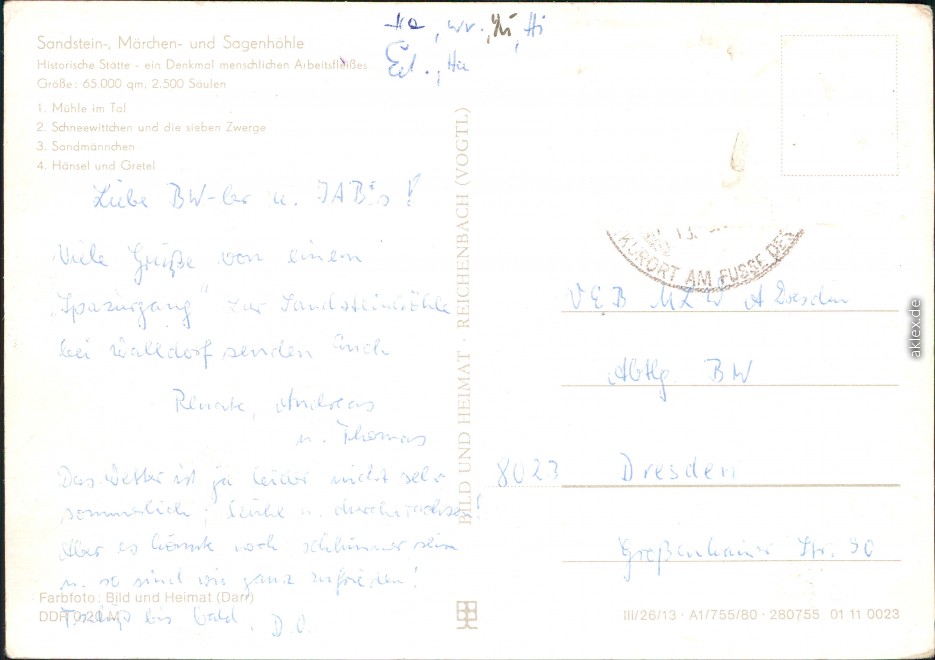 Sandstein-, Märchen- und Sagenhöhle
Historische Stätte - ein Denkmal menschlichen Arbeitsfleißes
Größe: 65.000 qm, 2.500 Säulen
1. Mühle im Tal
2. Schneewittchen und die sieben Zwerge
3. Sandmännchen
4. Hänsel und Gretel
Liebe BW-ler u. JAB's!
Viele Grüße von einem
"Spaziergang" zur Sandsteinhöhle
bei Walldorf senden Euch
Renate, Andreas
u. Thomas
Das Wetter ist ja leider nicht sehr
sommerlich; kühl u. durchwachsen!
Aber es könnte noch schlimmer sein
u. so sind wir ganz zufrieden!
bis bald, D.O.
Farbfoto: Bild und Heimat (Darr)
DDR 0,20 M
BILD UND HEIMAT · REICHENBACH (VOGTL)
Ha, wr., Hi
, Ha
KURORT AM FUSSE DES
VEB MLW Dresden
Abtlg BW
8023 Dresden
Großenhainer Str. 30
III/26/13 · A1/755/80 · 280755 01 11 0023
aklex.de